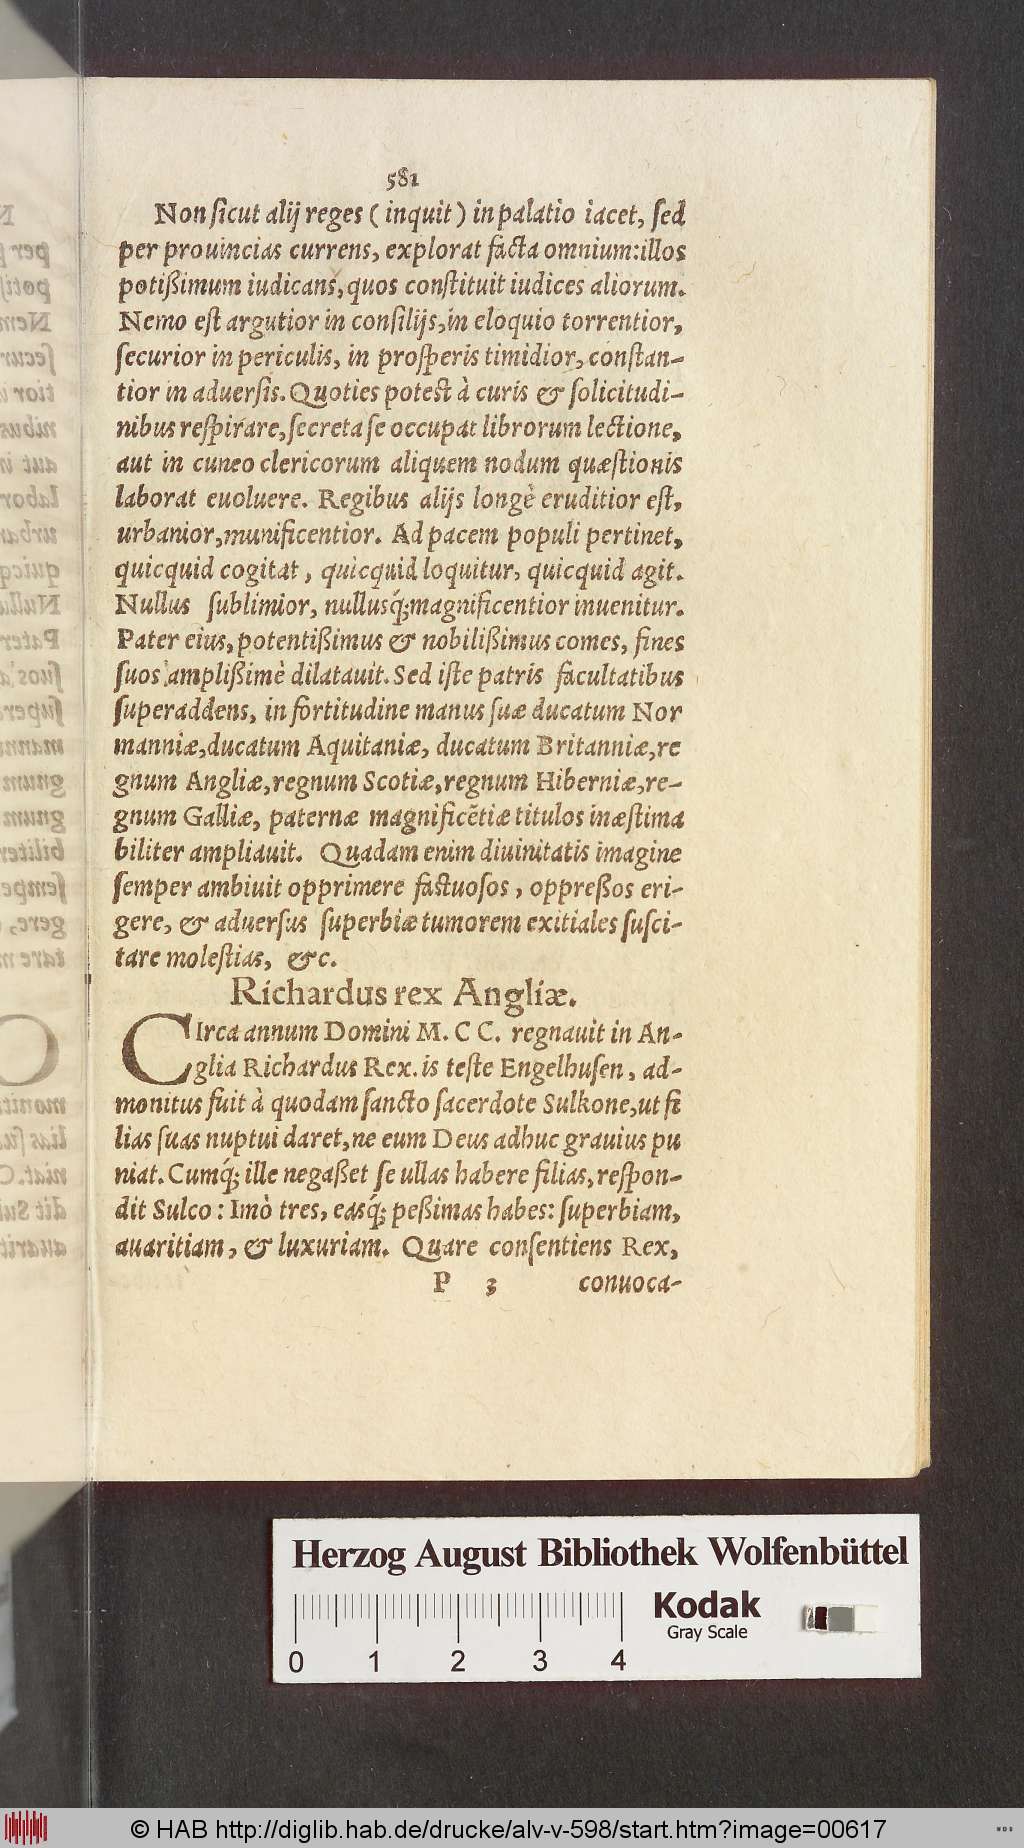 581
Non ſicut alij reges ( inquit ) in palatio iacet, ſed
per prouincias currens, explorat facta omnium: illos
potißimum iudicans, quos conſtituit iudices aliorum.
Nemo eſt argutior in conſilijs, in eloquio torrentior,
ſecurior in periculis, in proſperis timidior, conſtan-
tior in aduerſis. Quoties potest à curis & ſolicitudi-
nibus reſpirare, ſecreta ſe occupat librorum lectione,
aut in cuneo clericorum aliquem nodum quæſtionis
laborat euoluere. Regibus alijs longè eruditior eſt,
urbanior, munificentior. Ad pacem populi pertinet,
quicquid cogitat, quicquid loquitur, quicquid agit.
Nullus ſublimior, nullusq́; magnificentior inuenitur.
Pater eius, potentißimus & nobilißimus comes, fines
ſuos amplißimè dilatauit. Sed iſte patris facultatibus
ſuperaddens, in fortitudine manus ſuæ ducatum Nor
manniæ, ducatum Aquitaniæ, ducatum Britanniæ, re
gnum Angliæ, regnum Scotiæ, regnum Hiberniæ, re-
gnum Galliæ, paternæ magnificẽtiæ titulos inæſtima
biliter ampliauit. Quadam enim diuinitatis imagine
ſemper ambiuit opprimere faſtuoſos, oppreßos eri-
gere, & aduerſus ſuperbiæ tumorem exitiales ſuſci-
tare moleſtias, &c.
Richardus rex Angliæ.
CIrca annum Domini M. C C. regnauit in An-
glia Richardus Rex. is teſte Engelhuſen, ad-
monitus fuit à quodam ſancto ſacerdote Sulkone, ut fi
lias ſuas nuptui daret, ne eum Deus adhuc grauius pu
niat. Cumq́; ille negaßet ſe ullas habere filias, reſpon-
dit Sulco: Imò tres, easq́; peßimas habes: ſuperbiam,
auaritiam, & luxuriam. Quare conſentiens Rex,
P 3 conuoca-
Herzog August Bibliothek Wolfenbüttel
Kodak
Gray Scale
0 1 2 3 4
© HAB http://diglib.hab.de/drucke/alv-v-598/start.htm?image=00617